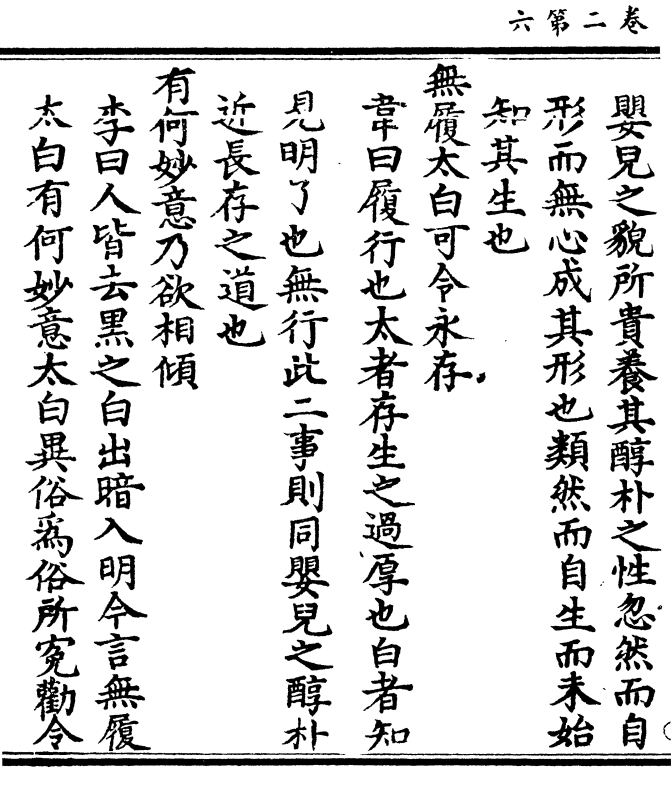 卷二第六
嬰兒之貌所貴養其醇朴之性忽然而自
形而無心成其形也類然而自生而未始
知其生也
無履太白可令永存
韋曰履行也太者存生之過厚也白者知
見明了也無行此二事則同嬰兒之醇朴
近長存之道也
有何妙意乃欲相傾
李曰人皆去黑之白出暗入明今言無履
太白有何妙意太白異俗爲俗所冤勸令